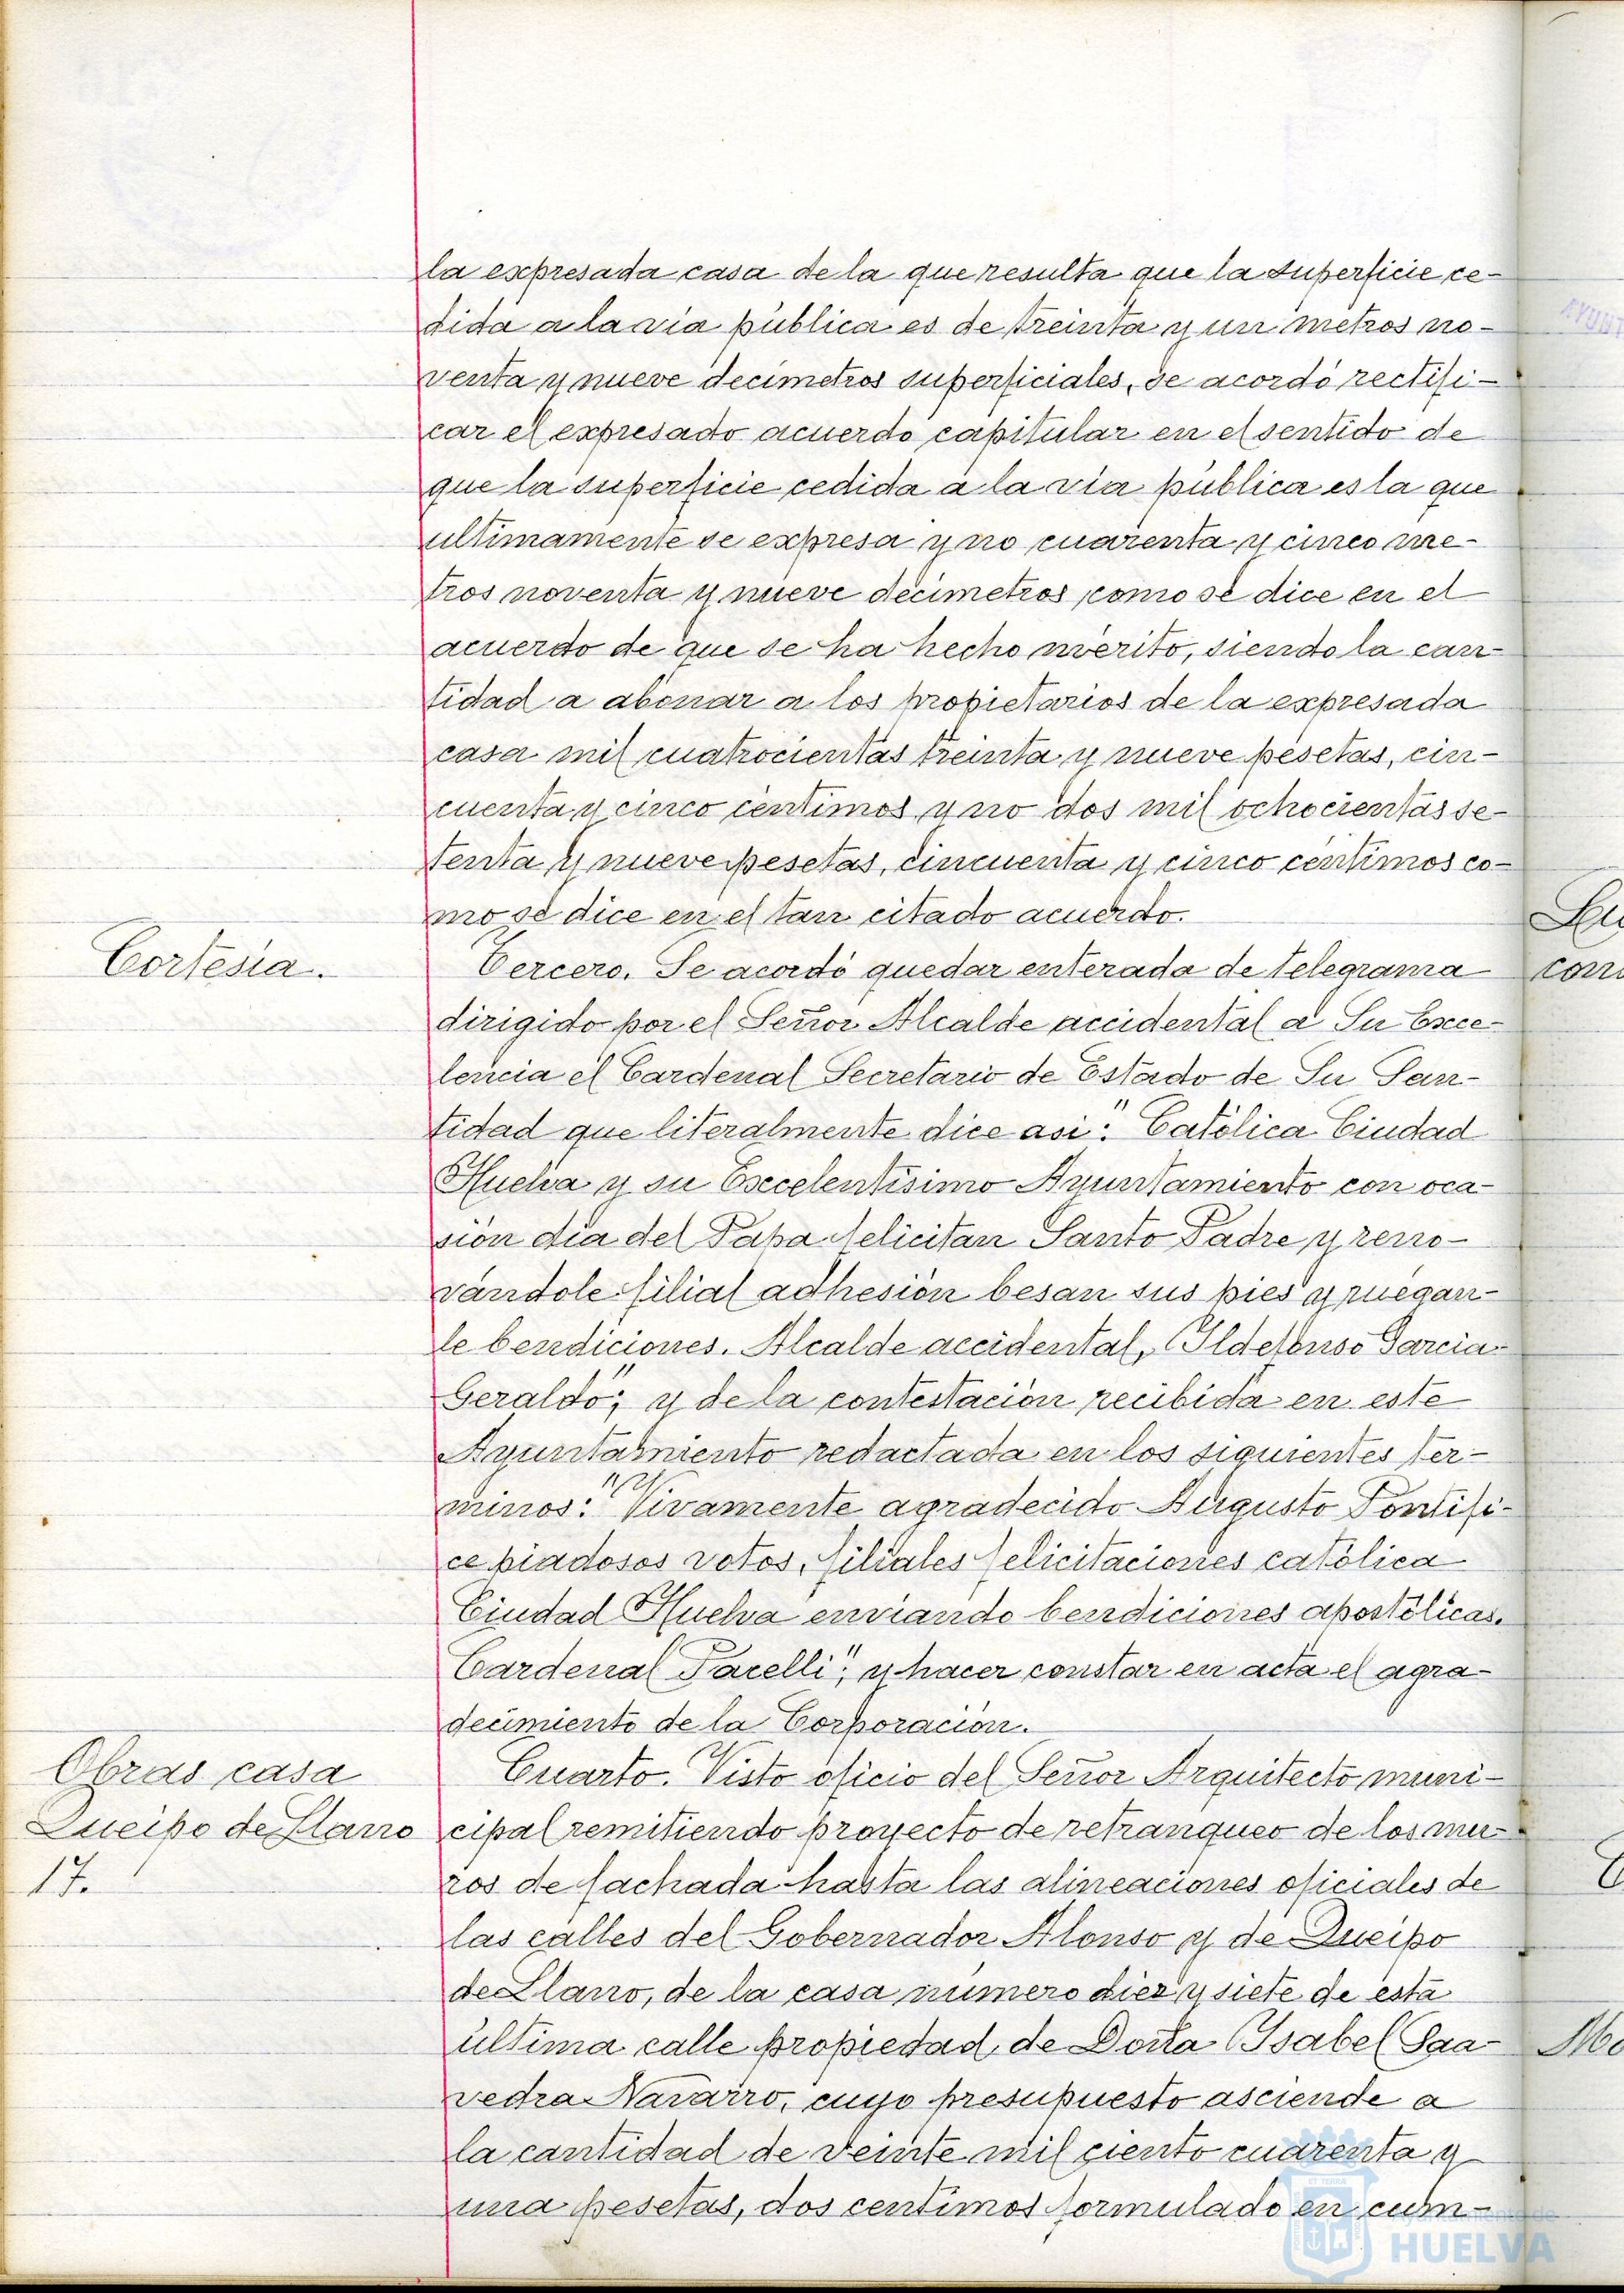 la expresada casa de la que resulta que la superficie ce-
dida a la via pública es de treinta y un metros no-
venta y nueve decimetros superficiales, se acordó rectifi-
car el expresado acuerdo capitular en el sentido de
que la superficie cedida a la via pública es la que
ultimamente se expresa y no cuarenta y cinco me-
tros noventa y nueve decimetros como se dice en el
acuerdo de que se ha hecho mérito, siendo la can-
tidad a abonar a los propietarios de la expresada
casa mil cuatrocientas treinta y nueve pesetas, cin-
cuenta y cinco centimos y no dos mil ochocientas se-
tenta y nueve pesetas, cincuenta y cinco centimos co-
mo se dice en el tan citado acuerdo.
Cortesia.
Tercero. Se acordó quedar enterada de telegrama
dirigido por el Señor Alcalde accidental a Su Exce-
lencia el Cardenal Secretario de Estado de Su San-
tidad que literalmente dice asi: "Católica Ciudad
Huelva y su Excelentisimo Ayuntamiento con oca-
sión dia del Papa felicitan Santo Padre y reno-
vándole filial adhesión besan sus pies y ruegan-
le bendiciones. Alcalde accidental, Ildefonso Garcia
Geraldo"; y de la contestación recibida en este
Ayuntamiento redactada en los siguientes ter-
minos: "Vivamente agradecido Augusto Pontifi-
ce piadosos votos, filiales felicitaciones católica
Ciudad Huelva enviando bendiciones apostólicas.
Cardenal Pacelli"; y hacer constar en acta el agra-
decimiento de la Corporación.
Obras casa
Queipo de Llano
17.
Cuarto. Visto oficio del Señor Arquitecto muni-
cipal remitiendo proyecto de retranqueo de los mu-
ros de fachada hasta las alineaciones oficiales de
las calles del Gobernador Alonso y de Queipo
de Llano, de la casa número diez y siete de esta
última calle propiedad de Doña Isabel Saa-
vedra Navarro, cuyo presupuesto asciende a
la cantidad de veinte mil ciento cuarenta y
una pesetas, dos centimos formulado en cum-
HUELVA